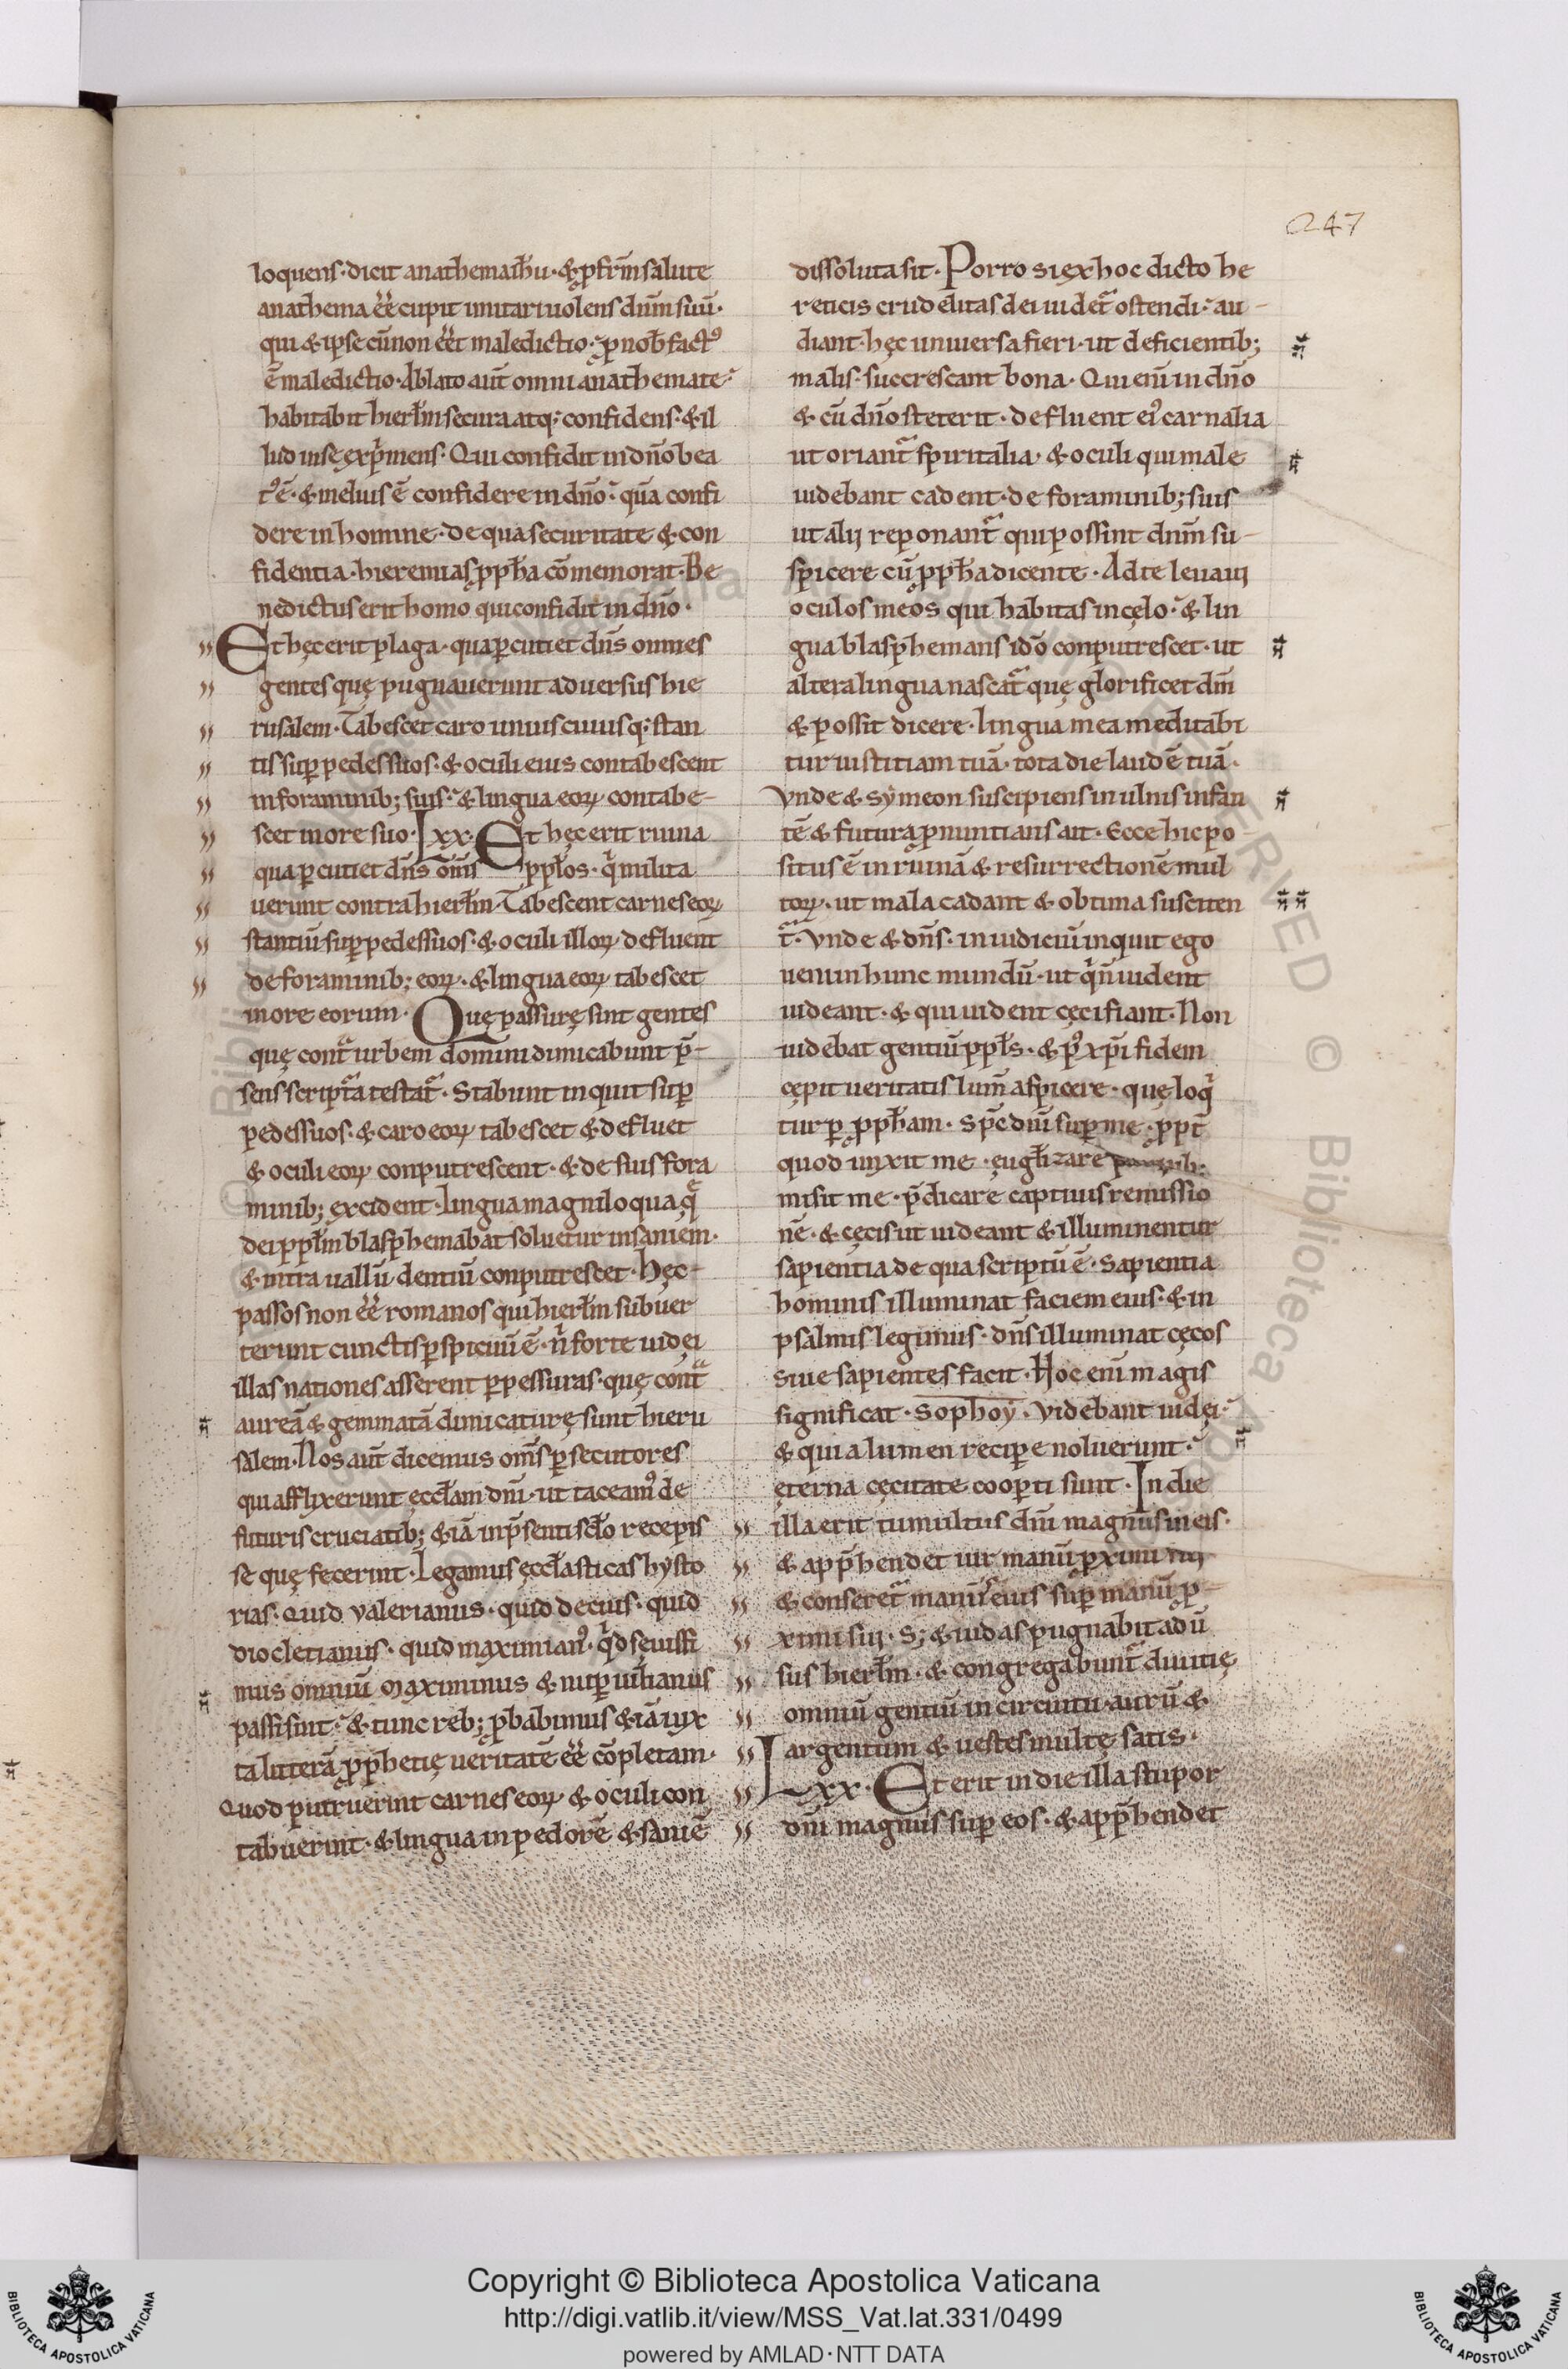 247
loquens· dicit anathema ih̄u· & ꝓ fr̄m salute
anathema ee̅ cupit imitari uolens dn̄m suū·
qui & ipse cū non ee̅t maledictio· ꝓ nob̄ factꝰ
ē maledictio· Ablato aut̄ omni anathemate·
habitabit hierl̄m secura atq; confidens· & il
lud in sę exp̄mens· Qui confidit in dn̄o bea
tꝰ ē· & melius ē confidere in dn̄o· quā confi
dere in homine· de qua securitate & con
fidentia· hieremias ꝓph̄a cōmemorat· Be
nedictus erit homo qui confidit in dn̄o·
Et hęc erit plaga· qua ꝑcutiet dn̄s omnes
gentes quę pugnauerunt aduersus hie
rusalem· Tabescet caro uniuscuiusq; stan
tis suꝑ pedes suos· & oculi eius contabescent
in foraminib; suis· & lingua eoꝝ contabe-
scet in ore suo· Lxx· Et hęc erit ruina
qua ꝑcutiet dn̄s om̄s ppl̄os· q̄ milita
uerunt contra hierl̄m· Tabescent carnes eoꝝ
stantiū suꝑ pedes suos· & oculi illoꝝ defluent̄
de foraminib; eoꝝ· & lingua eoꝝ tabescet
in ore eorum· Quę passurę sint gentes
quę cont̄ urbem domini dimicabunt p̄-
sens script̄a testat̄· Stabunt inquit suꝑ
pedes suos· & caro eoꝝ tabescet & defluet
& oculi eoꝝ conputrescent· & de suis fora
minib; excident· lingua magniloqua q̄
dei ppl̄m blasphemabat soluetur in saniem·
& intra uallū dentiū conputrescet· Hęc
passos non ee̅ romanos qui hierl̄m subuer
terunt cunctis ꝑspicuū ē· n̄ forte iudęi
illas nationes asserent ꝑpessuras· quę cont̄
aureā & gemmatā dimicaturę sunt hieru
salem· Nos aut̄ dicemus om̄s ꝑsecutores
qui afflixerunt ęccl̄am dn̄i· ut taceamꝰ de
futuris cruciatib; & iā in p̄senti sc̄lo recepis
se quę fecerint· Legamus ęccl̄asticas hysto
rias· quid valerianus· quid decius· quid
diocletianus· quid maximianꝰ· q̄d sęuissi
mus omniū maximinus & nuꝑ iulianus
passi sint· & tunc reb; ꝓbabimus & iā iux
ta litterā ꝓphetię ueritatē ee̅ cōpletam·
Quod putruerint carnes eoꝝ & oculi con
tabuerint· & lingua in pedorē & saniē
dissoluta sit· Porro si ex hoc dicto he
reticis crudelitas dei uidet̄ ostendi· au-
diant· hęc uniuersa fieri· ut deficientib;
malis· succrescant bona· Qui eni̅ in dn̄o
& cū dn̄o steterit· defluent eiꝰ carnalia
ut oriant̄ spiritalia· & oculi qui male
uidebant cadent· de foraminib; suis
ut alij reponant̄ qui possint dn̄m su-
spicere cū ꝓph̄a dicente· Ad te leuaui
oculos meos qui habitas in cęlo· & lin
gua blasphemans idō conputrescet· ut
altera lingua nascat̄ quę glorificet dn̄m
& possit dicere· lingua mea meditabi
tur iustitiam tuā· tota die laudē tuā·
Vnde & symeon suscipiens in ulnis infan
tē & futura ꝓnuntians ait· Ecce hic po-
situs ē in ruinā & resurrectionē mul
toꝝ· ut mala cadant & obtima susciten
t̄· Vnde & dn̄s· in iudiciū inquit ego
ueni in hunc mundū· ut q̄ n̄ uident
uideant· & qui uident cęci fiant· Non
uidebat gentiū ppl̄s· & pꝰ xp̄i fidem
cępit ueritatis lum̄ aspicere· quę loq̄
tur ꝑ ꝓph̄am· Sp̄c dn̄i suꝑ me· ꝓpt̄
quod unxit me· euglīzare pauꝑib;
misit me· p̄dicare captiuis remissio
nē· & cęcis ut uideant & illuminentur
sapientia de qua scriptū ē· Sapientia
hominis illuminat faciem eius· & in
psalmis legimus· dn̄s illuminat cęcos
siue sapientes facit· Hoc eni̅ magis
significat· sophoy· Videbant iudęi·
& quia lumen reciꝑe noluerunt·
ęterna cęcitate cooꝑti sunt· In die
illa erit tumultus dn̄i magnus in eis·
& app̄hendet uir manū ꝓximi sui
& conseret̄ manus eius suꝑ manū ꝓ-
ximi sui· S; & iudas pugnabit adū
sus hierl̄m· & congregabunt̄ diuitię
omniū gentiū in circuitu· aurū &
argentum & uestes multę satis·
Lxx· Et erit in die illa stupor
dn̄i magnus suꝑ eos· & app̄hendet
Copyright © Biblioteca Apostolica Vaticana
http://digi.vatlib.it/view/MSS_Vat.lat.331/0499
powered by AMLAD·NTT DATA
BIBLIOTECA APOSTOLICA VATICANA
BIBLIOTECA APOSTOLICA VATICANA